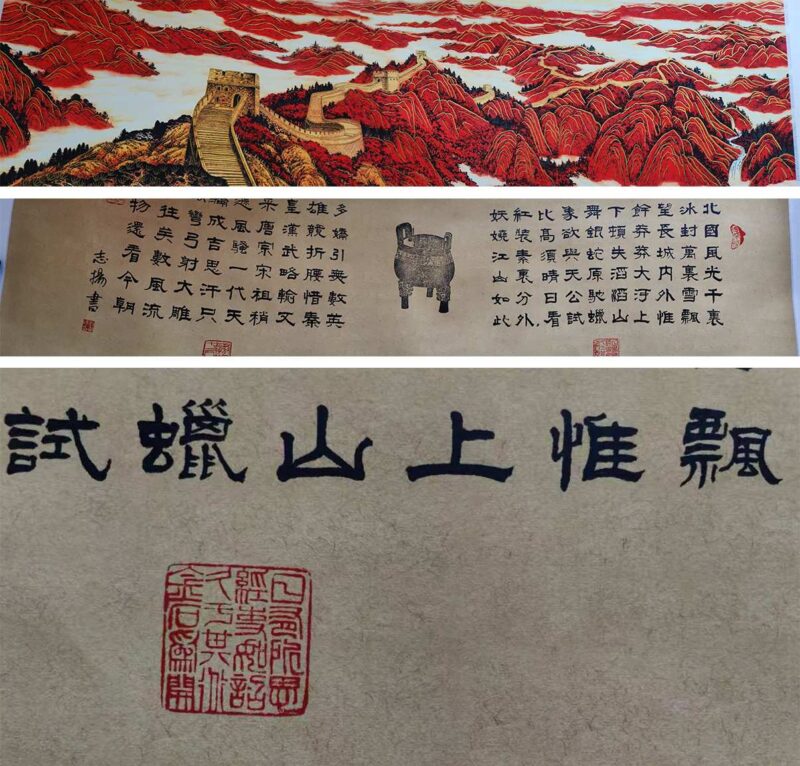 北國風光千裏
冰封萬裏雪飄
望長城内外惟
餘莽莽大河上
下頓失滔滔山
舞銀蛇原馳蠟
象欲與天公試
比高須晴日看
紅装素裏分外
妖嬈江山如此
多嬌引無數英
雄競折腰惜秦
皇漢武略輸文
采唐宗宋祖稍
遜風騷一代天
驕成吉思汗只
彎弓射大雕
往矣數風流
物還看今朝
志揚書
飄惟上山蠟試